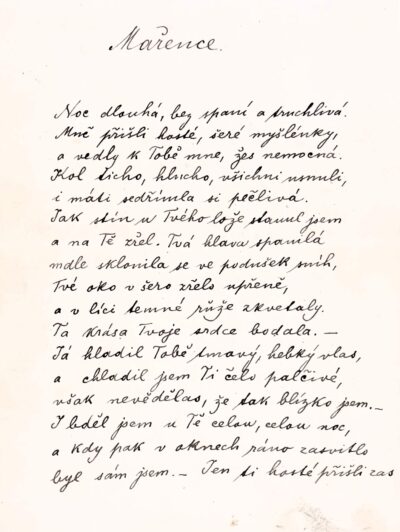 Mařence.
Noc dlouhá, bez spaní a truchlivá.
Mně přišli hosté, šeré myšlénky,
a vedly k Tobě mne, žes nemocná.
Kol ticho, hlucho, všichni usnuli,
i máti sedřímla si pečlivá.
Jak stín u Tvého lože stanul jsem
a na Tě zřel. Tvá hlava spanilá
mdle sklonila se ve podušek sníh,
Tvé oko v šero zřelo upřeně,
a v líci temné růže zkvetaly.
Ta krása Tvoje srdce bodala. —
Já hladil Tobě tmavý, hebký vlas,
a chladil jsem Ti čelo palčivé,
však nevědělas, že tak blízko jsem. —
I bděl jsem u Tě celou, celou noc,
a kdy pak v oknech ráno zasvitlo
byl sám jsem. — Jen ti hosté přišli zas